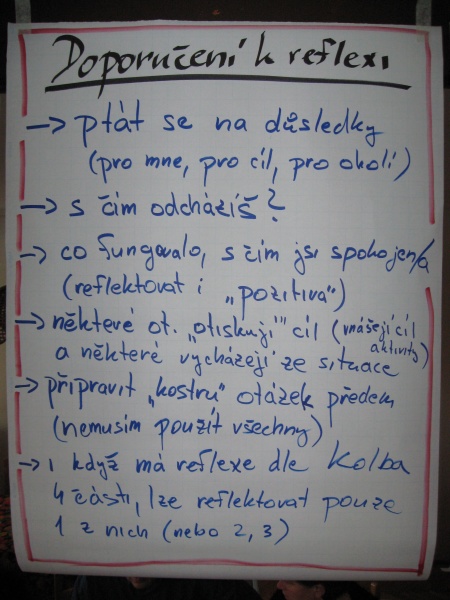 Doporučení k reflexi
→ ptát se na důsledky
(pro mne, pro cíl, pro okolí)
→ s čím odcházíš?
→ co fungovalo, s čím jsi spokojen/a
(reflektovat i „pozitiva")
→ některé ot. „otiskují" cíl (vnášejí cíl aktivity)
a některé vycházejí ze situace
→ připravit „kostru" otázek předem
(nemusím použít všechny)
→ i když má reflexe dle Kolba
4 části, lze reflektovat pouze
1 z nich (nebo 2, 3)